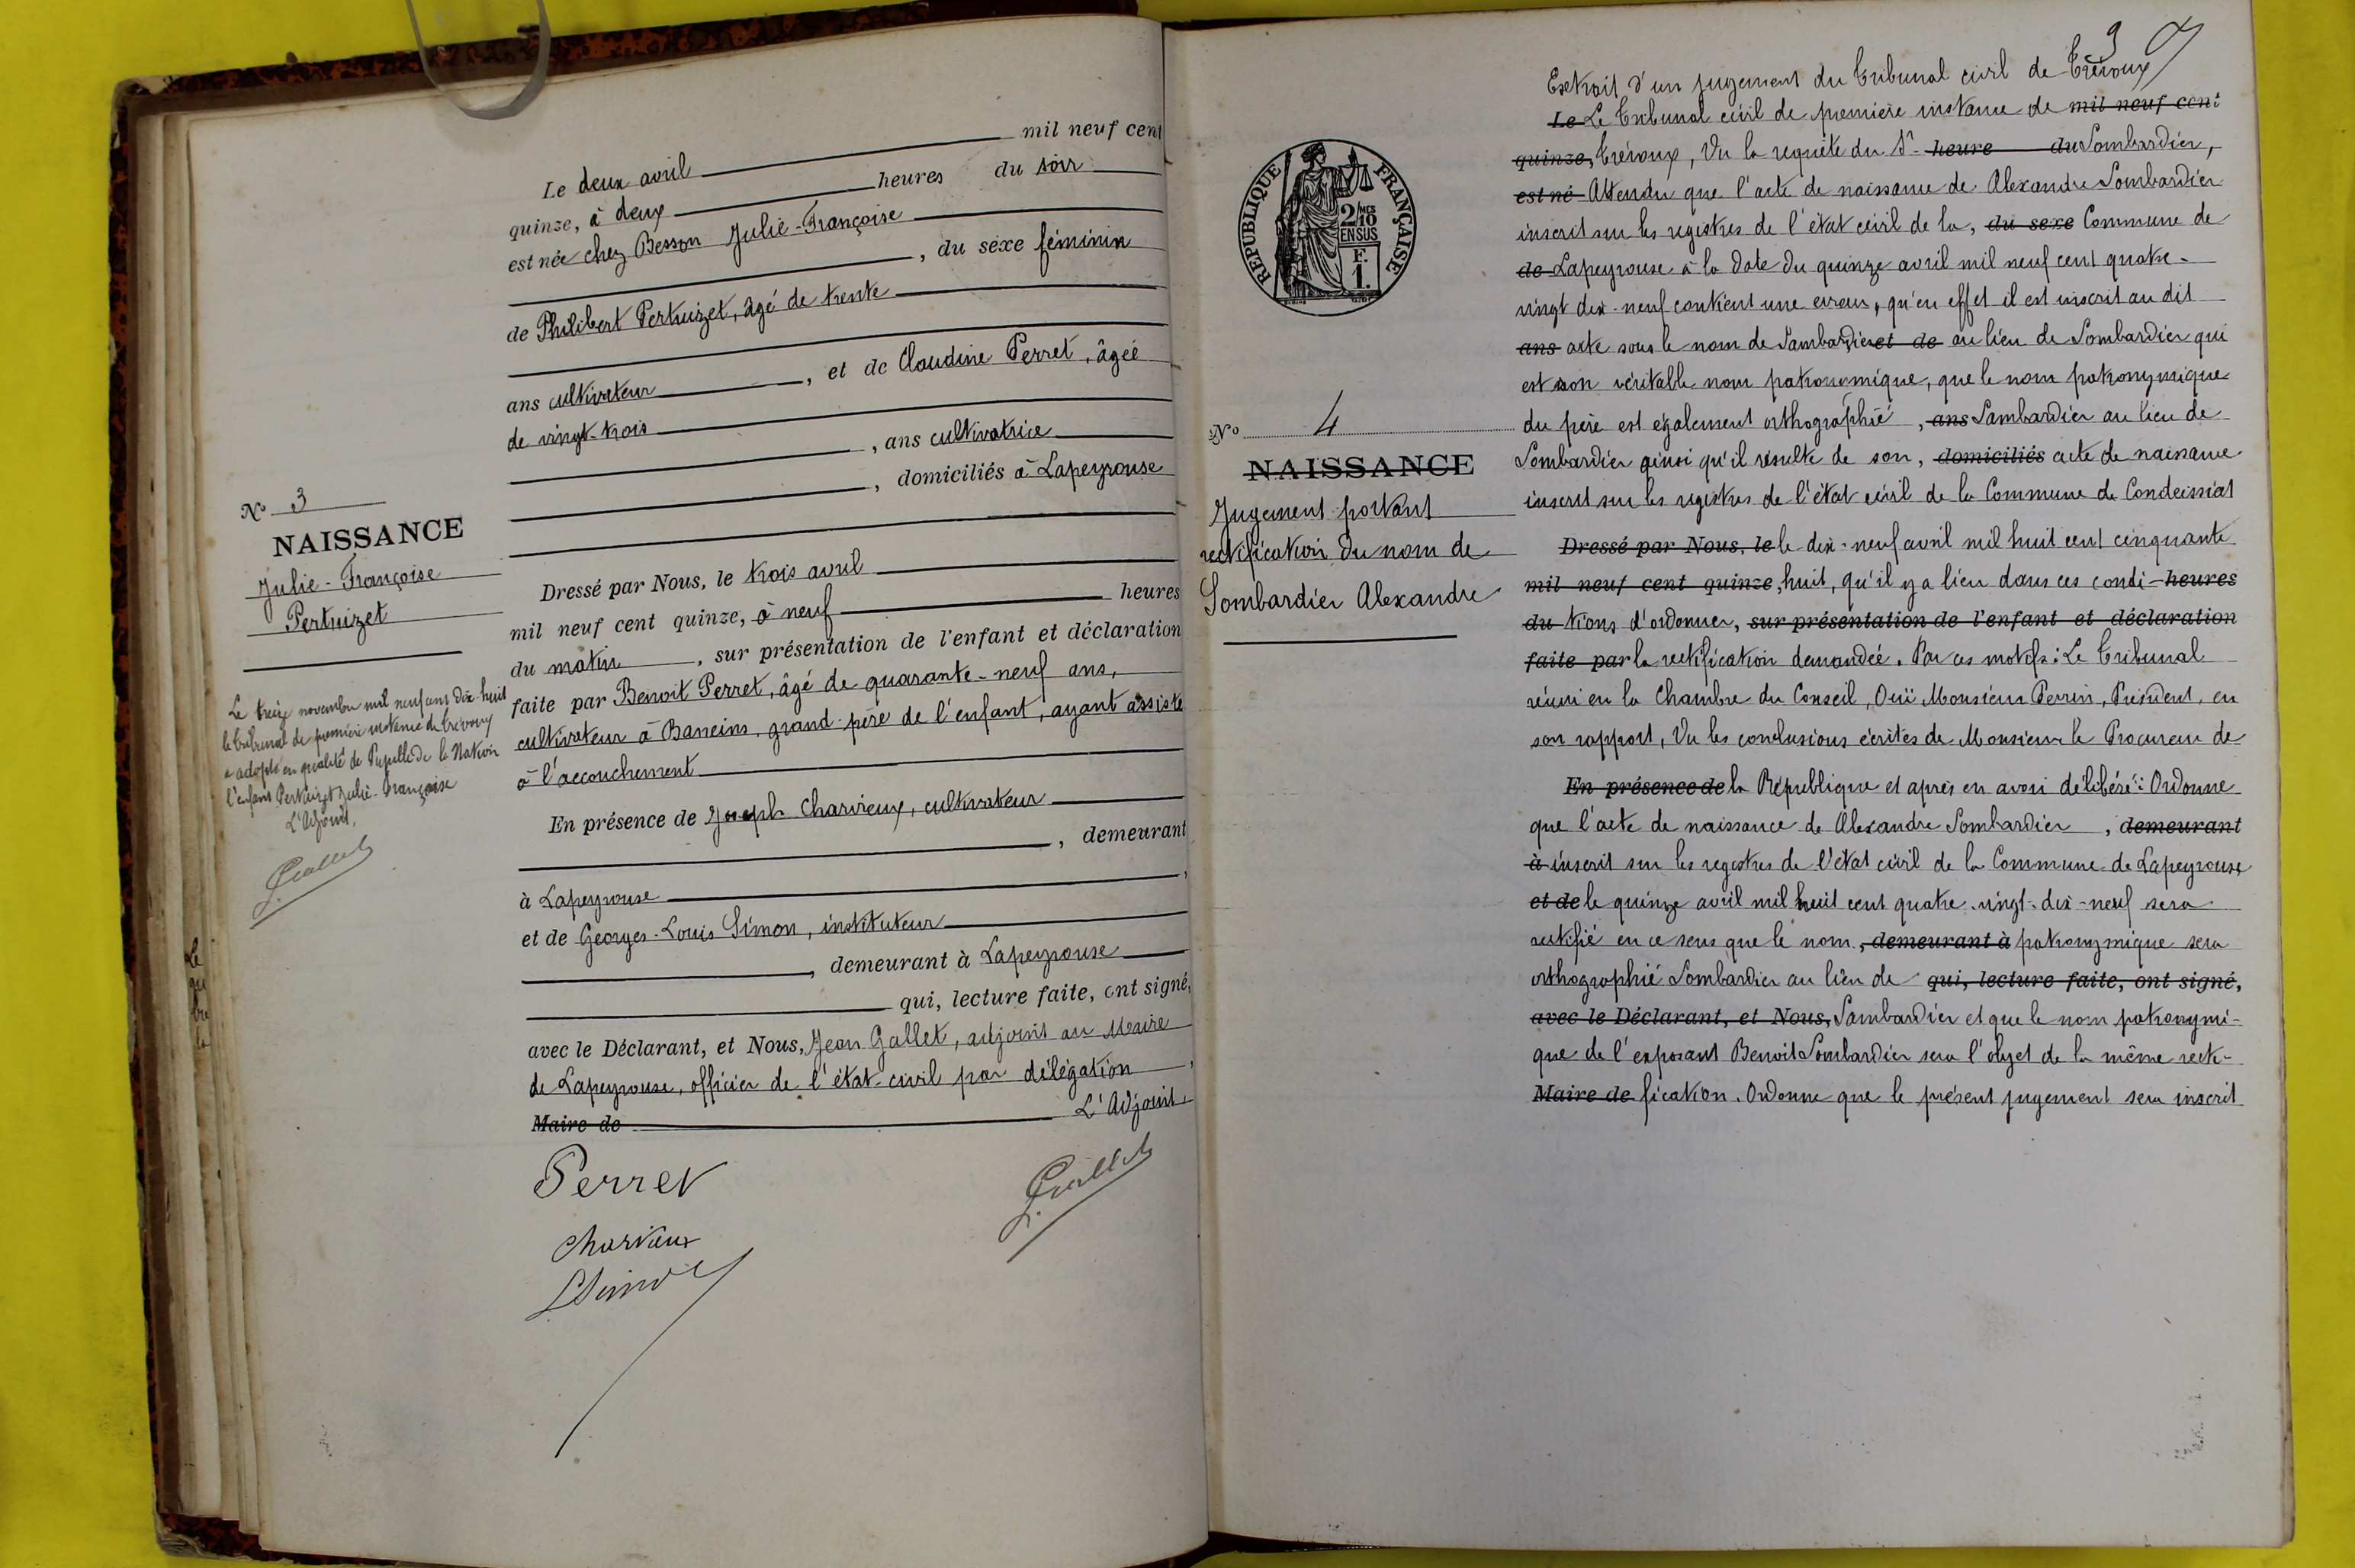 N° 3
NAISSANCE
Julie-Françoise
Pertuizet
Le treize novembre mil neuf cent dix-huit
le tribunal de première instance de Trévoux
a adopté en qualité de Pupille de la Nation
l'enfant Pertuizet Julie-Françoise
L'Adjoint,
J. Gallet
Le deux avril mil neuf cent
quinze, à deux heures du soir
est née chez Besson Julie-Françoise
, du sexe féminin
de Philibert Pertuizet, âgé de trente
ans cultivateur , et de Claudine Perret, âgée
de vingt-trois
, ans cultivatrice
, domiciliés à Lapeyrouse
Dressé par Nous, le trois avril
mil neuf cent quinze, à neuf heures
du matin , sur présentation de l'enfant et déclaration
faite par Benoit Perret, âgé de quarante-neuf ans,
cultivateur à Baneins, grand-père de l'enfant, ayant assisté
à l'accouchement
En présence de Joseph Charvieux, cultivateur
, demeurant
à Lapeyrouse ,
et de Georges-Louis Simon, instituteur
, demeurant à Lapeyrouse
qui, lecture faite, ont signé,
avec le Déclarant, et Nous, Jean Gallet, adjoint au Maire
de Lapeyrouse, officier de l'état-civil par délégation ,
Maire de L'Adjoint,
Perret
J. Gallet
Charvieux
L Simon
Le
qu
tri
la
9
RÉPUBLIQUE FRANÇAISE
2/10 MES
EN SUS
F.
1.
N° 4
NAISSANCE
Jugement portant
rectification du nom de
Lombardier Alexandre
Extrait d'un jugement du Tribunal civil de Trévoux
Le Le Tribunal civil de première instance de mil neuf cent
quinze, Trévoux, Vu la requête du Sr heure du Lombardier,
est né Attendu que l'acte de naissance de Alexandre Lombardier
inscrit sur les registres de l'état civil de la, du sexe Commune de
de Lapeyrouse à la date du quinze avril mil neuf cent quatre-
vingt dix-neuf contient une erreur, qu'en effet il est inscrit au dit
ans acte sous le nom de Lambardier et de au lieu de Lombardier qui
est son véritable nom patronymique, que le nom patronymique
du père est également orthographié , ans Lambardier au lieu de
Lombardier ainsi qu'il résulte de son, domiciliés acte de naissance
inscrit sur les registres de l'état civil de la Commune de Condeissiat
Dressé par Nous, le le dix-neuf avril mil huit cent cinquante
mil neuf cent quinze, huit, qu'il y a lieu dans ces condi- heures
du tions d'ordonner, sur présentation de l'enfant et déclaration
faite par la rectification demandée. Par ces motifs: Le Tribunal
réuni en la Chambre du Conseil, Ouï Monsieur Perrin, Président, en
son rapport, Vu les conclusions écrites de Monsieur le Procureur de
En présence de la République et après en avoir délibéré: Ordonne
que l'acte de naissance de Alexandre Lombardier , demeurant
à inscrit sur les registres de l'état civil de la Commune de Lapeyrouse
et de le quinze avril mil huit cent quatre-vingt-dix-neuf sera
rectifié en ce sens que le nom, demeurant à patronymique sera
orthographié Lombardier au lieu de qui, lecture faite, ont signé,
avec le Déclarant, et Nous, Lambardier et que le nom patronymi-
que de l'exposant Benoit Lombardier sera l'objet de la même recti-
Maire de fication. Ordonne que le présent jugement sera inscrit